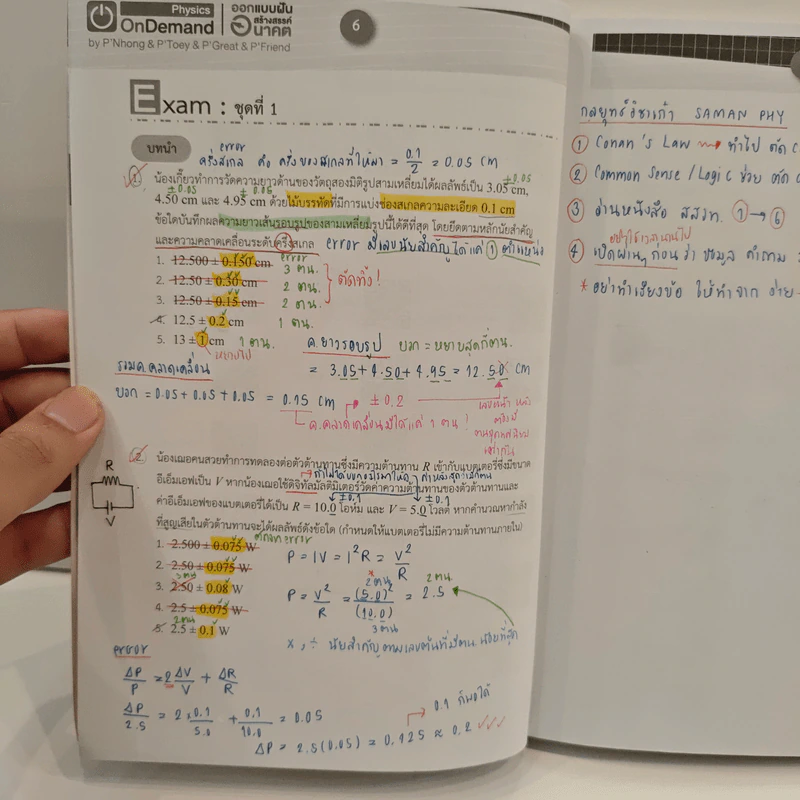 Physics
OnDemand
ออกแบบฝัน
สร้างสรรค์
อนาคต
by P'Nhong & P'Toey & P'Great & P'Friend
6
Exam : ชุดที่ 1
บทนำ
error
ครึ่งสเกล คือ ครึ่งของสเกลที่ให้มา = 0.1/2 = 0.05 cm
1. น้องเกี๊ยวทำการวัดความยาวด้านของวัตถุสองมิติรูปสามเหลี่ยมได้ผลลัพธ์เป็น 3.05 cm,
±0.05
±0.05 ±0.05
4.50 cm และ 4.95 cm ด้วยไม้บรรทัดที่มีการแบ่งช่องสเกลความละเอียด 0.1 cm
ข้อใดบันทึกผลความยาวเส้นรอบรูปของสามเหลี่ยมรูปนี้ได้ดีที่สุด โดยยึดตามหลักนัยสำคัญ
และความคลาดเคลื่อนระดับครึ่งสเกล error มีเลขนัยสำคัญได้แค่ 1 ตำแหน่ง
error
1. 12.500 ± 0.150 cm 3 ตน.
2. 12.50 ± 0.30 cm 2 ตน.
3. 12.50 ± 0.15 cm 2 ตน.
ตัดทิ้ง!
4. 12.5 ± 0.2 cm 1 ตน.
5. 13 ± 1 cm 1 ตน.
ค.ยาวรอบรูป บวก = ทศนิยมน้อยสุดกี่ตน.
= 3.05 + 4.50 + 4.95 = 12.50 cm
รวมค.คลาดเคลื่อน
บวก = 0.05 + 0.05 + 0.05 = 0.15 cm ± 0.2
ค.คลาดเคลื่อนมีได้แค่ 1 ตน!
2. น้องเฌอคนสวยทำการทดลองต่อตัวต้านทานซึ่งมีความต้านทาน R เข้ากับแบตเตอรี่ซึ่งมีขนาด
อีเอ็มเอฟเป็น V หากน้องเฌอใช้ดิจิทัลมัลติมิเตอร์วัดค่าความต้านทานของตัวต้านทานและ
±0.1 ±0.1
ค่าอีเอ็มเอฟของแบตเตอรี่ได้เป็น R = 10.0 โอห์ม และ V = 5.0 โวลต์ หากคำนวณหากำลัง
ที่สูญเสียในตัวต้านทานจะได้ผลลัพธ์ดังข้อใด (กำหนดให้แบตเตอรี่ไม่มีความต้านทานภายใน)
R
V
1. 2.500 ± 0.075 W
2. 2.50 ± 0.075 W
3 ตน
3. 2.50 ± 0.08 W
4. 2.5 ± 0.075 W
2 ตน
5. 2.5 ± 0.1 W
P = IV = I²R = V²/R
2 ตน 2 ตน.
P = V²/R = (5.0)²/(10.0) = 2.5
3 ตน
×, ÷ นัยสำคัญตามเลขต้นที่มีตน. น้อยที่สุด
error
ΔP/P = 2ΔV/V + ΔR/R
ΔP/2.5 = 2×0.1/5.0 + 0.1/10.0 = 0.05
0.1 ก็พอได้
ΔP = 2.5(0.05) = 0.125 ≈ 0.2
กลยุทธ์วิชาเก้า SAMAN PHY
① Conan's Law → ทำไป ตัด
② Common Sense / Logic ช่วย ตัด
③ อ่านหนังสือ สสวท. ① → ⑥
④ เปิดผ่านๆ ก่อนว่า ข้อมูล คำถาม
* อย่าทำเรียงข้อ ให้ทำจาก ง่าย